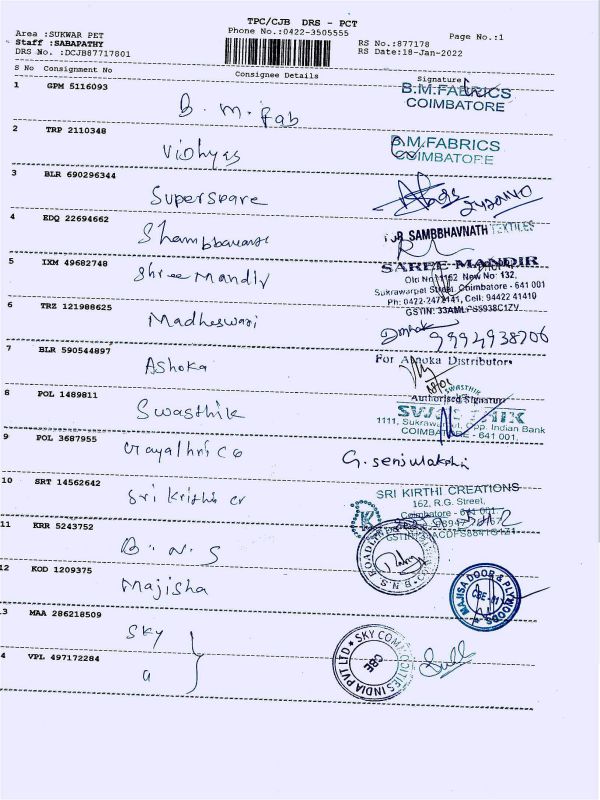 TPC/CJB DRS - PCT
Area :SUKWAR PET
Phone No.:0422-3505555
Page No.:1
Staff :SABAPATHY
RS No.:877178
DRS No. :DCJB87717801
RS Date:18-Jan-2022
S No Consignment No
Consignee Details
Signature
1 GPM 5116093 B. M. Fab
B.M.FABRICS
COIMBATORE
2 TRP 2110348 Vidhyas
B.M.FABRICS
COIMBATORE
3 BLR 690296344 Superspare
4 EDQ 22694662
SAMBBHAVNATH TEXTILES
5 IXM 49682748 Shree Mandir
SAREE MANDIR
Old No. 1162 New No: 132,
Sukrawarpet Street, Coimbatore - 641 001
Ph: 0422-2472141, Cell: 94422 41410
6 TRZ 121988625 Madheswari
9994938706
7 BLR 590544897 Ashoka
For Ashoka Distributor
Authorised Signatory
8 POL 1489811 Swasthik
SWASTHIK
1111, Sukrawar Opp. Indian Bank
COIMBATORE - 641 001.
9 POL 3687955 Gayathri CO
G. senjulakshi
10 SRT 14562642
SRI KIRTHI CREATIONS
162, R.G. Street,
Coimbatore - 641 001
11 KRR 5243752 B. N. S
B.N.S ROADLINES
12 KOD 1209375 Majisha
MAJISA DOOR & PLYWOODS
CBE
13 MAA 286218509 SKY
SKY COMMODITIES INDIA PVT LTD
CBE
14 VPL 497172284 "